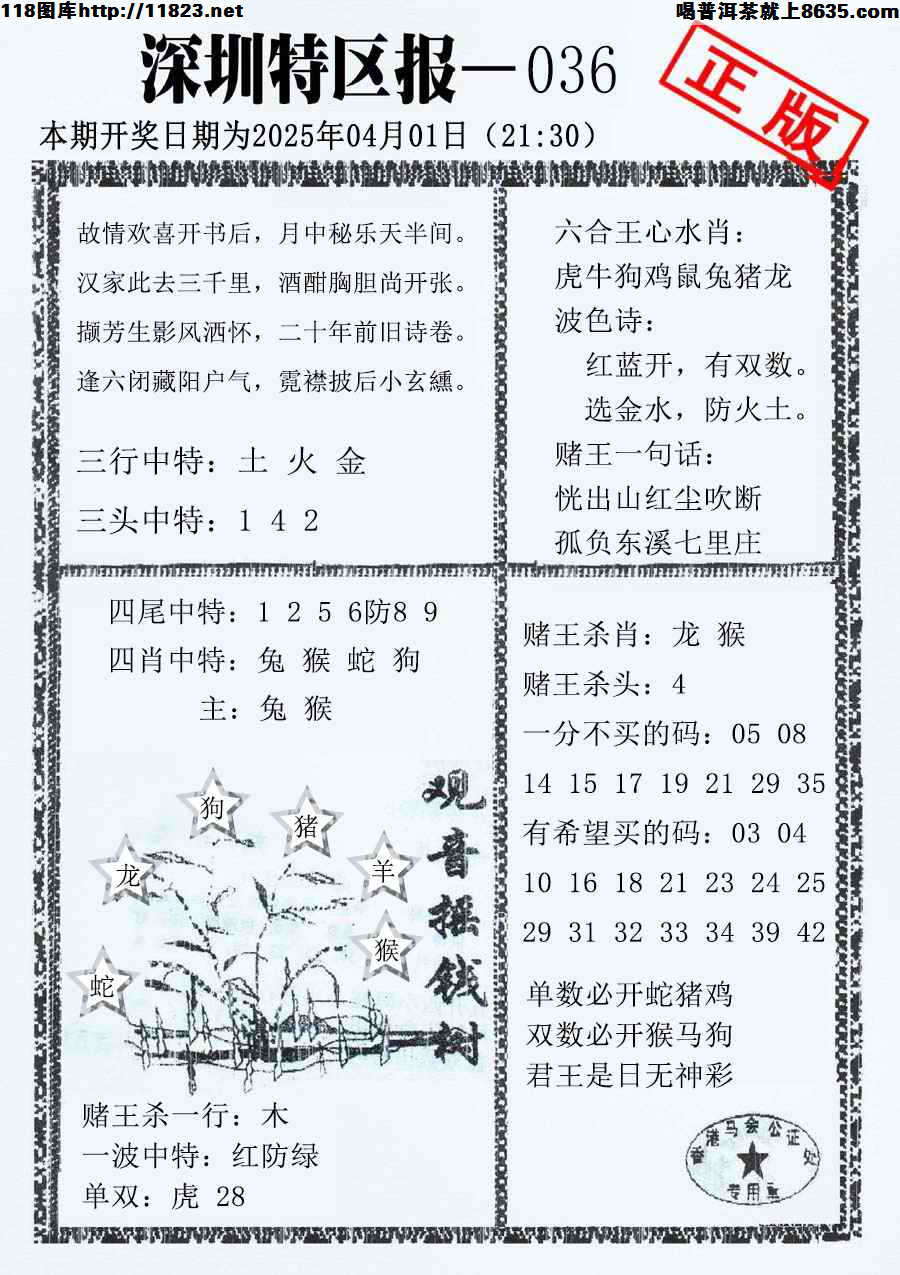 118图库http://11823.net
喝普洱茶就上8635.com
深圳特区报—036
正版
本期开奖日期为2025年04月01日（21:30）
故情欢喜开书后，月中秘乐天半间。
汉家此去三千里，酒酣胸胆尚开张。
撷芳生影风洒怀，二十年前旧诗卷。
逢六闭藏阳户气，霓襟披后小玄纁。
三行中特：土 火 金
三头中特：1 4 2
六合王心水肖：
虎牛狗鸡鼠兔猪龙
波色诗：
红蓝开，有双数。
选金水，防火土。
赌王一句话：
恍出山红尘吹断
孤负东溪七里庄
四尾中特：1 2 5 6防8 9
四肖中特：兔 猴 蛇 狗
主：兔 猴
狗
猪
龙
羊
猴
蛇
观音摇钱树
赌王杀一行：木
一波中特：红防绿
单双：虎 28
赌王杀肖：龙 猴
赌王杀头：4
一分不买的码：05 08
14 15 17 19 21 29 35
有希望买的码：03 04
10 16 18 21 23 24 25
29 31 32 33 34 39 42
单数必开蛇猪鸡
双数必开猴马狗
君王是日无神彩
香港马会公证处
专用章